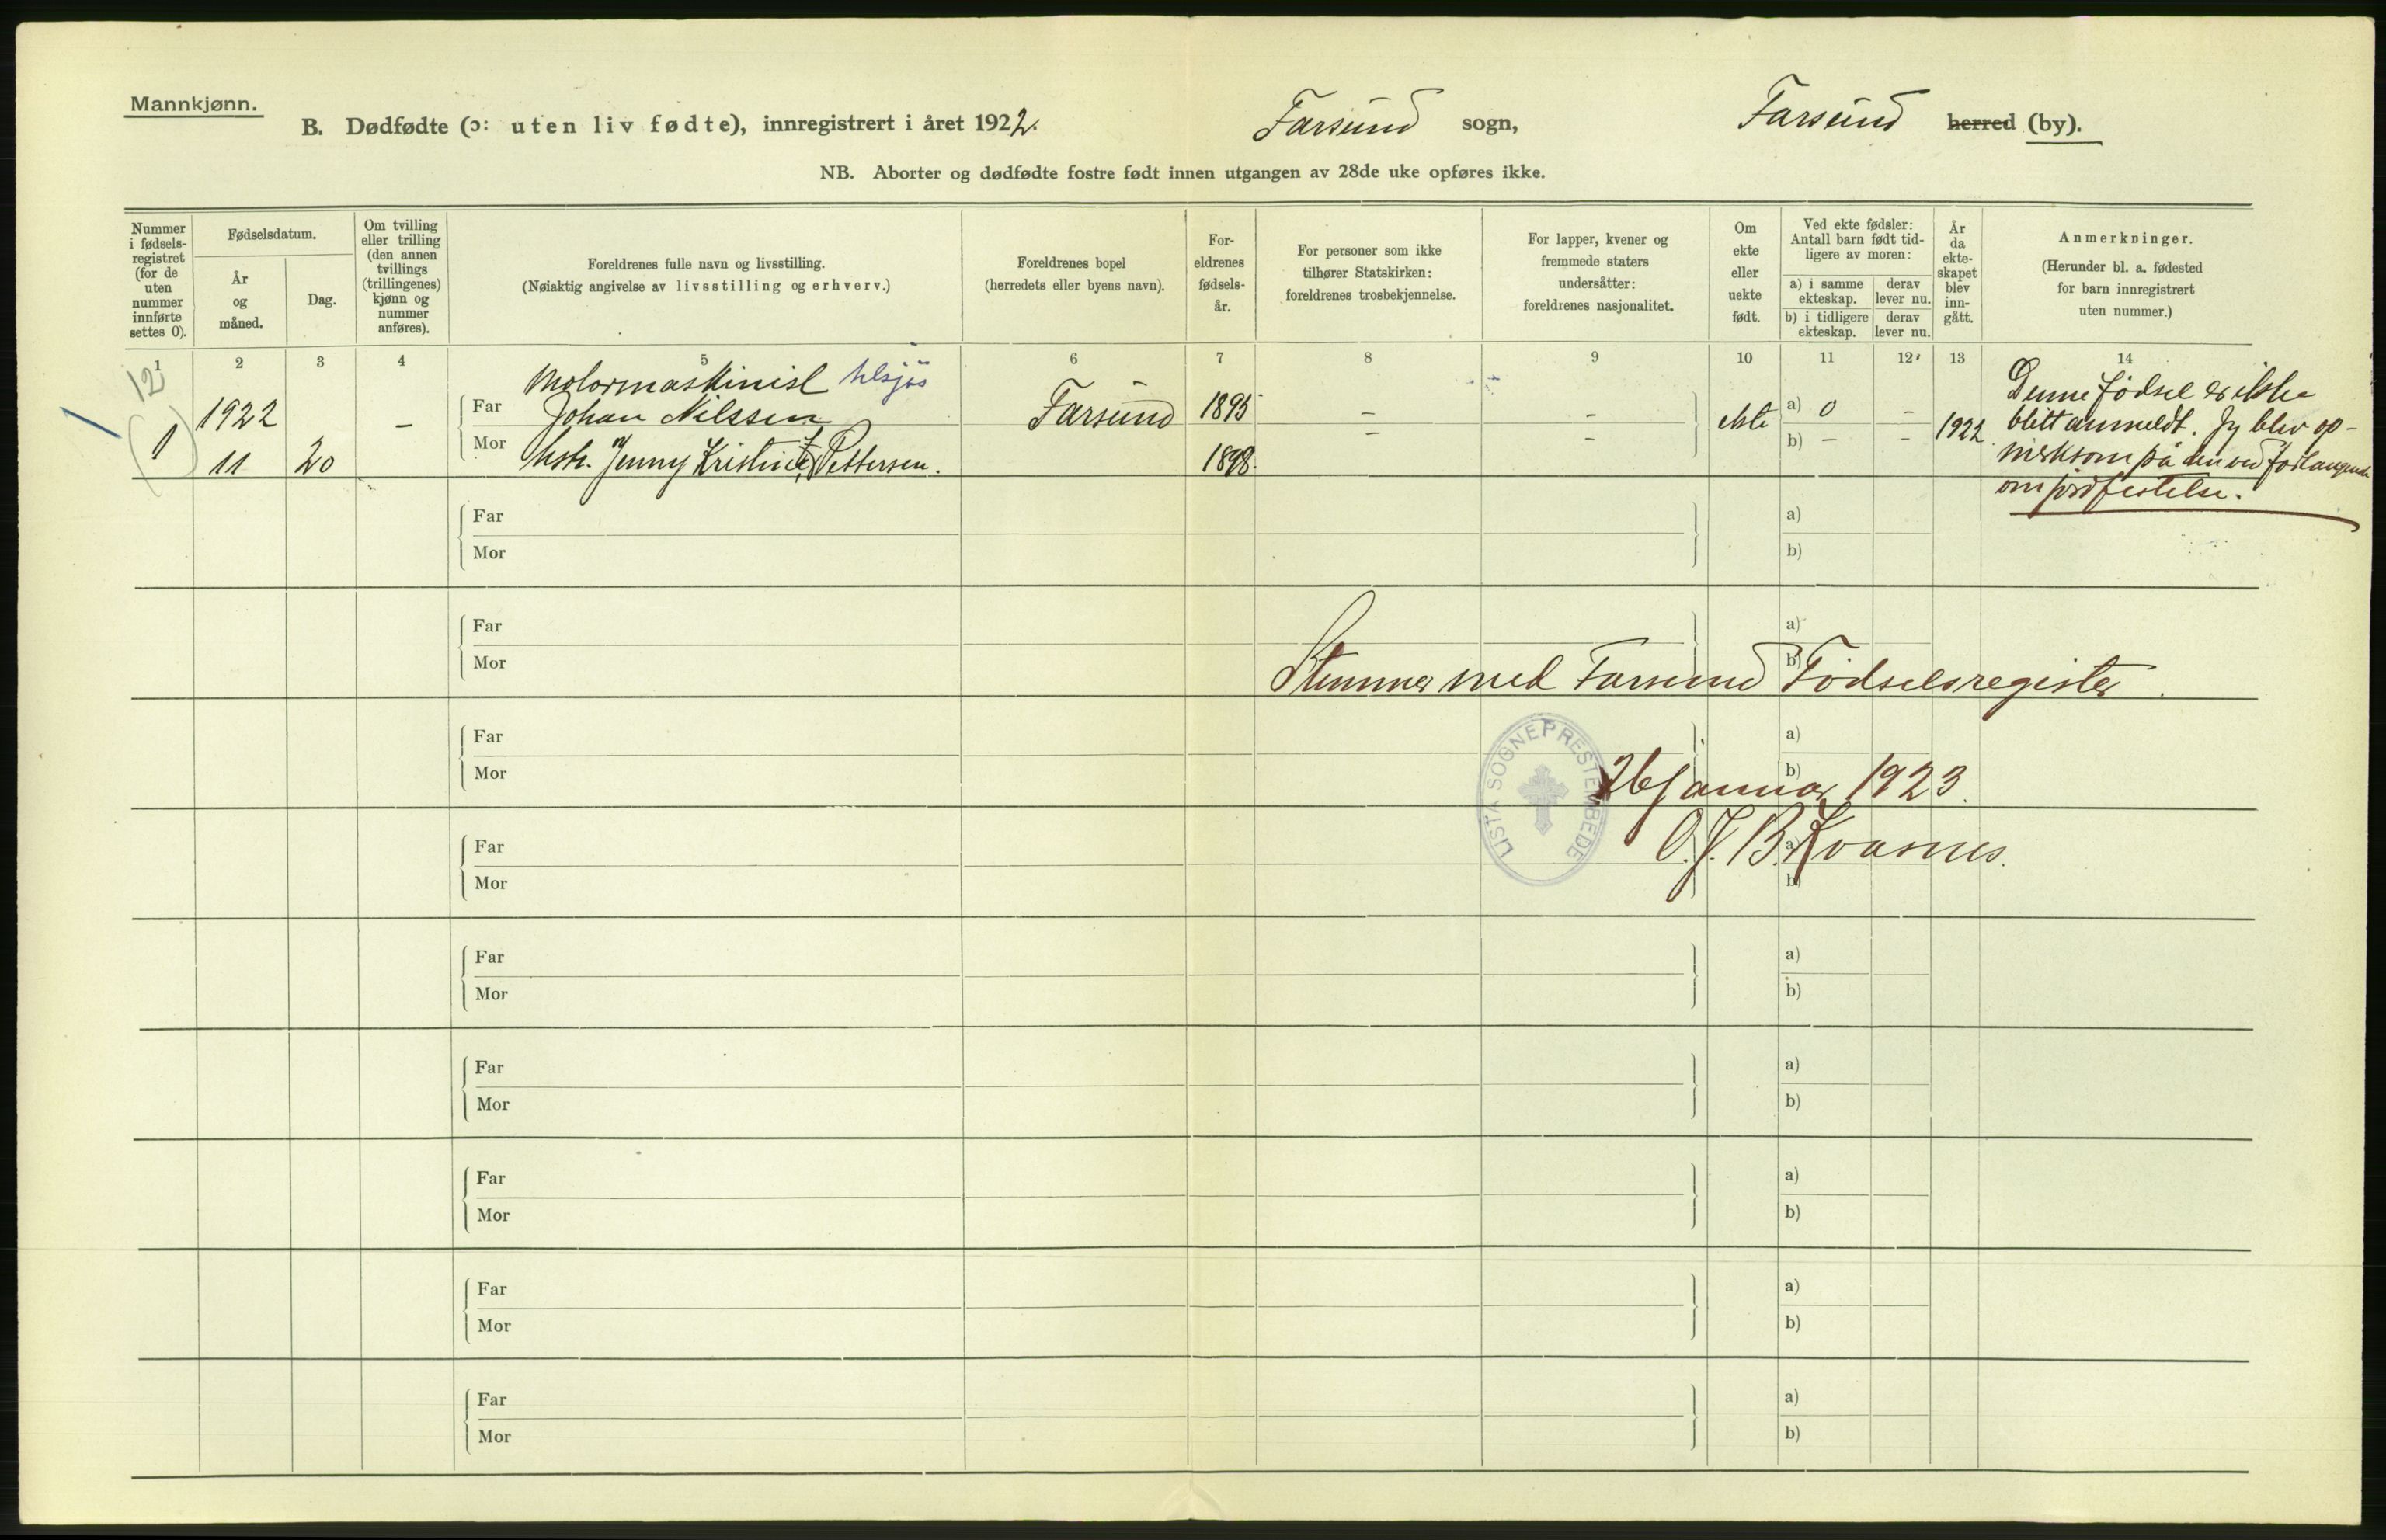 Mannkjønn.
B. Dødfødte (ɔ: uten liv fødte), innregistrert i året 1922. Farsund sogn, Farsund herred (by).
NB. Aborter og dødfødte fostre født innen utgangen av 28de uke opføres ikke.
Nummer i fødsels-registret (for de uten nummer innførte settes 0).
Fødselsdatum.
År og måned.
Dag.
Om tvilling eller trilling (den annen tvillings (trillingenes) kjønn og nummer anføres).
Foreldrenes fulle navn og livsstilling.
(Nøiaktig angivelse av livsstilling og erhverv.)
Foreldrenes bopel
(herredets eller byens navn).
For-eldrenes fødsels-år.
For personer som ikke tilhører Statskirken: foreldrenes trosbekjennelse.
For lapper, kvener og fremmede staters undersåtter: foreldrenes nasjonalitet.
Om ekte eller uekte født.
Ved ekte fødsler: Antall barn født tid-ligere av moren:
a) i samme ekteskap.
derav lever nu.
b) i tidligere ekteskap.
derav lever nu.
År da ekte-skapet blev inn-gått.
Anmerkninger.
(Herunder bl. a. fødested for barn innregistrert uten nummer.)
1 2 3 4 5 6 7 8 9 10 11 12 13 14
12
Motormaskinist
1 1922 – Far Johan Nilssen Farsund 1895 – – ekte a) 0 – 1922.
11 20 Mor hstr. Jenny Kristine f. Pettersen. 1898. – – b) – –
Denne fødsel er ikke
blitt anmeldt. Jeg blev op-
merksom på den ved forlangende
om jordfestelse.
Far a)
Mor b)
Far a)
Mor b)
Stemmer med Farsund Fødselsregister.
Far a)
Mor b)
LISTA SOGNEPRESTEMBEDE
26 januar 1923.
O. J. B. Kvasnes.
Far a)
Mor b)
Far a)
Mor b)
Far a)
Mor b)
Far a)
Mor b)
Far a)
Mor b)
Far a)
Mor b)